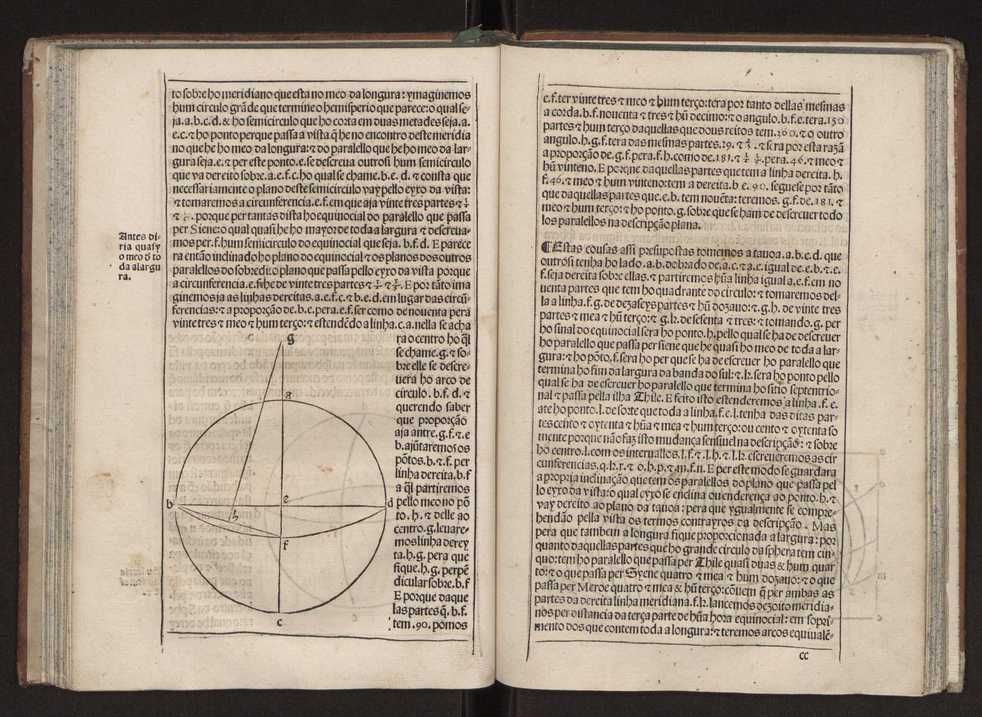 to sobre ho meridiano que esta no meo da longura: ymaginemos
hum circulo grãde que termine o hemisperio que parece: o qual se-
ja. a.b.c.d. & ho semicirculo que ho corta em duas metades seja. a.
e.c. ⁊ ho ponto per que passa a vista q̃ he no encontro deste meridia
no que he ho meo da longura: ⁊ do parallelo que he ho meo da lar-
gura seja. e. ⁊ per este ponto. e. se descreua outrosi hum semicirculo
que va dereito sobre. a.e.f.c. ho qual se chame. b.e.d. ⁊ consta que
necessariamente o plano deste semicirculo vay pello exyo da vista:
⁊ tomaremos a circunferencia. e.f. em que aja vinte tres partes ⁊
⁊ . porque per tantas dista ho equinocial do parallelo que passa
per Siene: o qual quasi he ho mayor de toda a largura ⁊ descreua-
mos per. f. hum semicirculo do equinocial que seja. b.f.d. E parece
ra então inclinado ho plano do equinocial ⁊ os planos dos outros
parallelos do sobredito plano que passa pello exyo da vista porque
a circunferencia. e.f. he de vinte tres partes ⁊ ⁊ . E por tãto ima
ginemos ja as linhas dereitas. a.e.f.c. ⁊ b.e.d. em lugar das circũ-
ferencias: ⁊ a proporção de. b.e. pera. e.f. ser como de nouenta pera
vinte tres ⁊ meo ⁊ hum terço: ⁊ estendẽdo a linha. c.a. nella se acha
Antes di-
ria quasy
o meo d̃ to
da a largu
ra.
ra o centro ho q̃l
se chame. g. ⁊ so-
bre elle se descre-
uera ho arco de
circulo. b.f.d. ⁊
querendo saber
que proporção
aja antre. g.f. ⁊ e
b. ajũtaremos os
põtos. b. ⁊ . f. per
linha dereita. b.f
a q̃l partiremos
pello meo no põ
to. h. ⁊ delle ao
centro. g. leuare-
mos linha derey
ta. h.g. pera que
fique. h.g. perpẽ
dicular sobre. b.f
E porque daque
las partes q̃. b.f.
tem. 90. pomos
g
a
b
e
d
h
f
c
e.f. ter vinte tres ⁊ meo ⁊ hum terço: tera por tanto dellas mesmas
a corda. b.f. nouenta ⁊ tres ⁊ hũ decimo: ⁊ o angulo. b.f.e. tera. 150
partes ⁊ hum terço daquellas que dous reitos tem. 360. ⁊ o outro
angulo. h.g.f. tera das mesmas partes. 29. ⁊ . ⁊ sera por esta razã
a proporção de. g.f. pera. f.h. como de. 181. ⁊ . pera. 46. ⁊ meo ⁊
hũ vinteno. E porque daquellas partes que tem a linha dereita. h.
f. 46. ⁊ meo ⁊ hum vinteno: tem a dereita. b e. 90. seguese por tãto
que daquellas partes que. e.b. tem nouẽta: teremos. g.f. de. 181. ⁊
meo ⁊ hum terço: ⁊ ho ponto. g. sobre que se ham de descreuer todo
los parallelos na descripção plana.
¶Estas cousas assi presupostas tomemos a tauoa. a.b.c.d. que
outrosi tenha ho lado. a.b. dobrado de. a.c. ⁊ a.e. igual de. e.b. ⁊ . e.
f. seja dereita sobre ellas, ⁊ partiremos hũa linha igual a. e.f. em no
uenta partes que tem ho quadrante do circulo: ⁊ tomaremos del-
la a linha. f.g. de dezaseys partes ⁊ hũ dozauo: ⁊ . g.h. de vinte tres
partes ⁊ mea ⁊ hũ terço: ⁊ g.k. de sesenta ⁊ tres: ⁊ tomando. g. per
ho sinal do equinocial sera ho ponto. h. pello qual se ha de descreuer
ho parallelo que passa per siene que he quasi ho meo de toda a lar-
gura: ⁊ ho põto. f. sera ho per que se ha de escreuer ho parallelo que
termina ho fim da largura da banda do sul: ⁊ . k. sera ho ponto pello
qual se ha de escreuer ho parallelo que termina ho sitio septentrio-
nal ⁊ passa pella ilha Thile. E feito isto estenderemos a linha. f. e.
ate ho ponto. l. de sorte que toda a linha. f.e.l. tenha das ditas par-
tes cento ⁊ oytenta ⁊ hũa ⁊ mea ⁊ hum terço: ou cento ⁊ oytenta so
mente porque não faz isto mudança sensiuel na descripçã: ⁊ sobre
ho centro. l. com os interuallos. l.f. ⁊ . l.h. ⁊ . l.k. escreueremos as cir
cunferencias. q.k.r. ⁊ o.h.p. ⁊ m.f.n. E per este modo se guardara
a propria inclinação que tem os parallelos do plano que passa pel
lo exyo da vista: o qual exyo se enclina ou endereça ao ponto. h. ⁊
vay dereito ao plano da tauoa: pera que ygualmente se compre-
hendão pella vista os termos contrayros da descripção. Mas
pera que tambem a longura fique proporcionada a largura: por
quanto daquellas partes que ho grande circulo da sphera tem cin-
quo: tem ho parallelo que passa per Thile quasi duas & hum quar
to: ⁊ o que passa per Syene quatro ⁊ mea ⁊ hum dozauo: ⁊ o que
passa per Meroe quatro ⁊ mea ⁊ hũ terço: cõuem q̃ per ambas as
partes da dereita linha meridiana. f.k. lancemos dezoito meridia-
nos per distancia da terça parte de hũa hora equinocial: em sopri-
mento dos que contem toda a longura: ⁊ teremos arcos equiualẽ-
cc